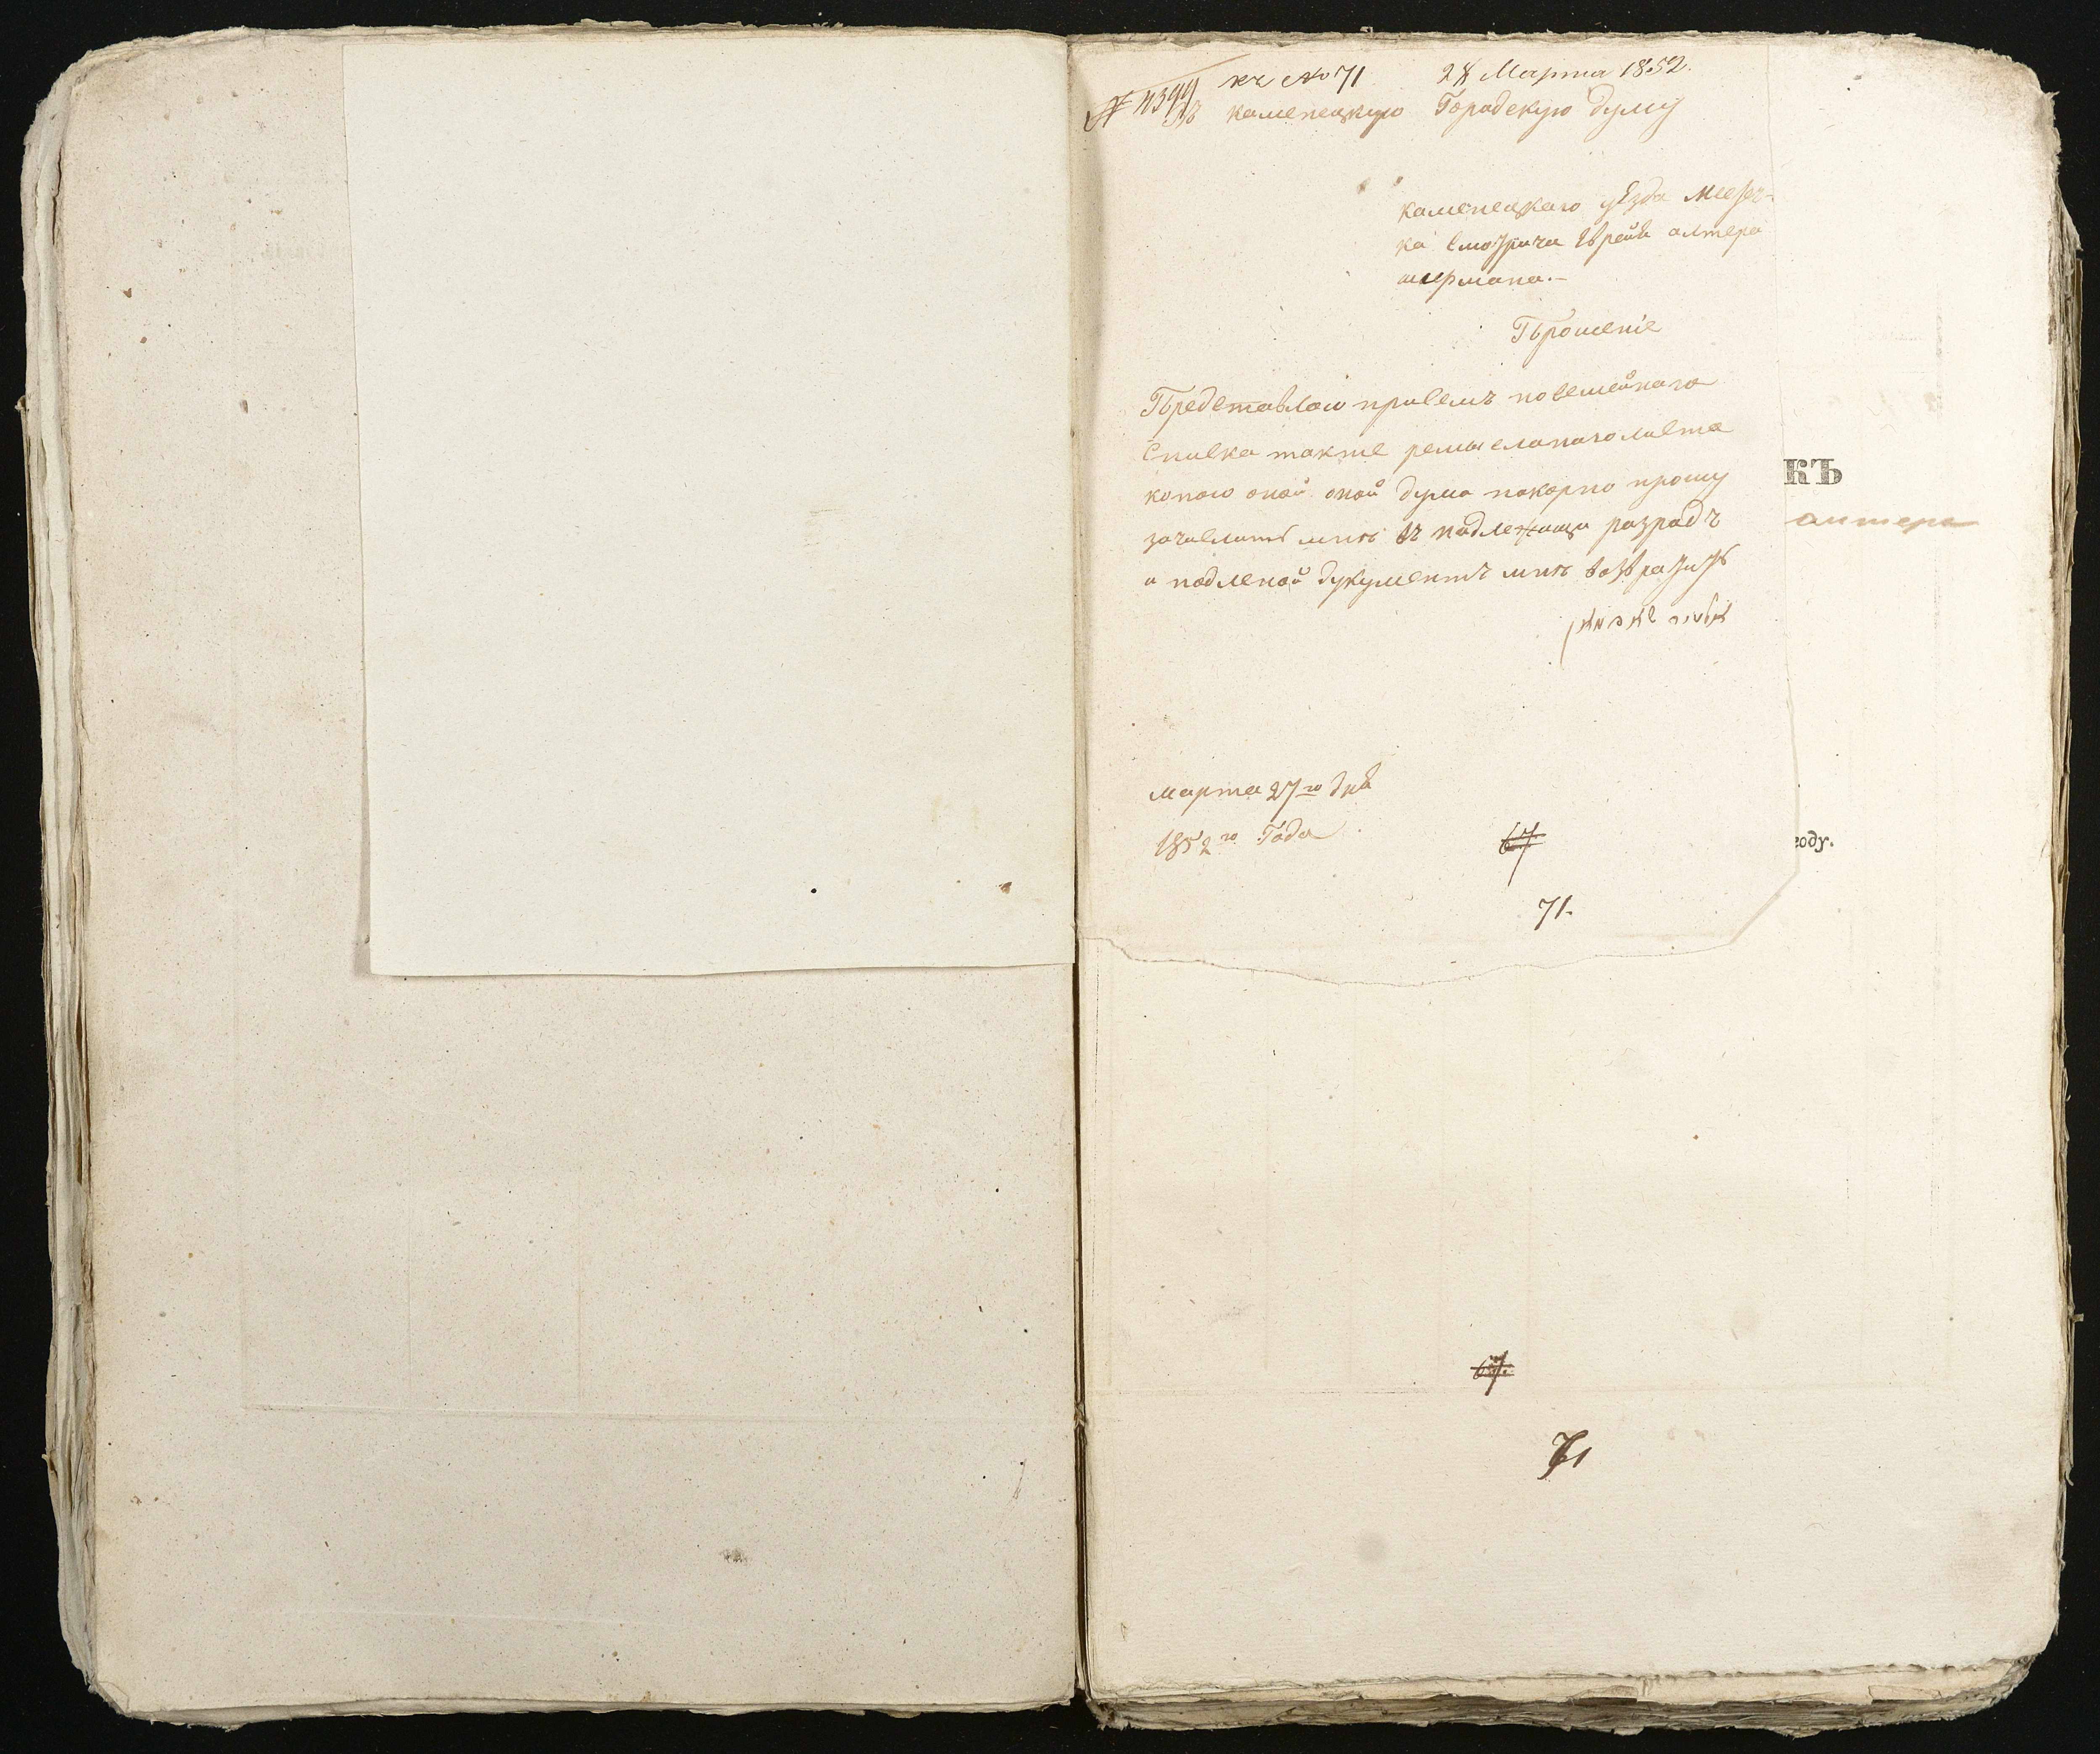 № 4399 къ № 71 28 Марта 1852.
Въ каменецкую Городскую думу
каменецкаго уезда Местеч-
ка Смотрича Еврейа алтера
шермана.-
Прошение
Представляю присемъ посемейнаго
Списка также ремы сланаго листа
копию оной дума покорно прошу
зачислить мнѣ въ надлежащи разрадъ
и подленой дукументъ мнѣ возвратить
марта 27го дня
1852го Года
67
71.
КЪ
алтера
году.
67
71